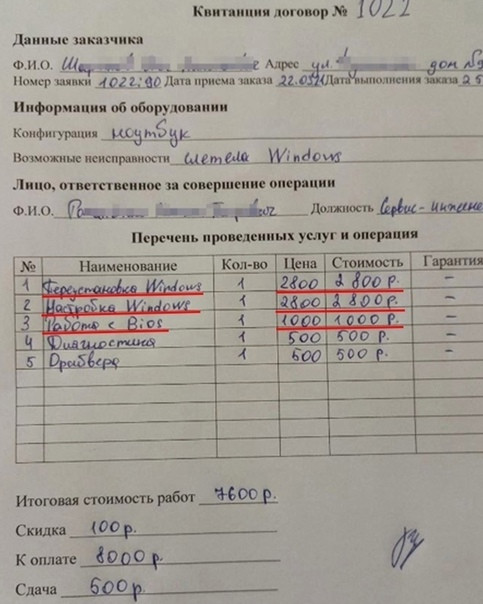 Квитанция договор № 1022
Данные заказчика
Ф.И.О. Адрес ул. дом №9
Номер заявки 1022:90 Дата приема заказа 22.05.21 Дата выполнения заказа 25
Информация об оборудовании
Конфигурация ноутбук
Возможные неисправности слетела Windows
Лицо, ответственное за совершение операции
Ф.И.О. Должность Сервис-инжене
Перечень проведенных услуг и операция
№ Наименование Кол-во Цена Стоимость Гарантия
1 Переустановка Windows 1 2800 2 800 р. –
2 Настройка Windows 1 2800 2 800 р. –
3 Работа с Bios 1 1000 1000 р. –
4 Диагностика 1 500 500 р. –
5 Драйвера 1 500 500 р. –
Итоговая стоимость работ 7600 р.
Скидка 100 р.
К оплате 8000 р.
Сдача 500 р.